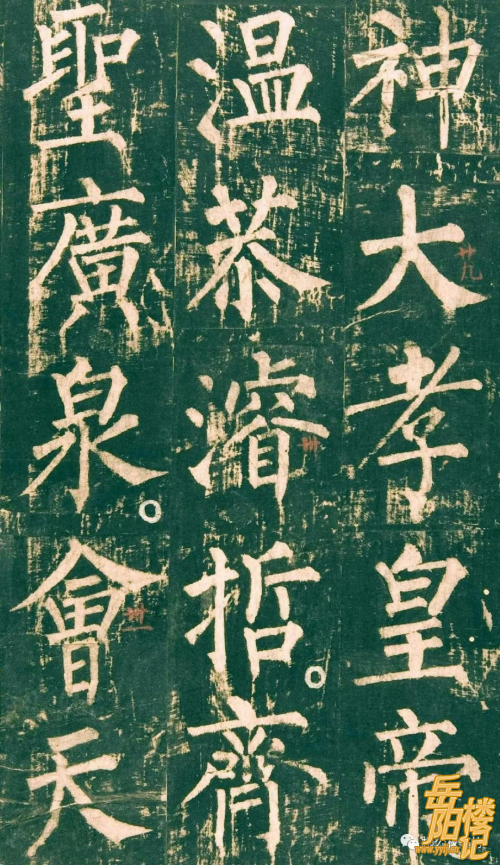 神大孝皇帝
温恭濬哲。齊
聖廣泉。會天
廿九
卅
卅一
岳阳楼记